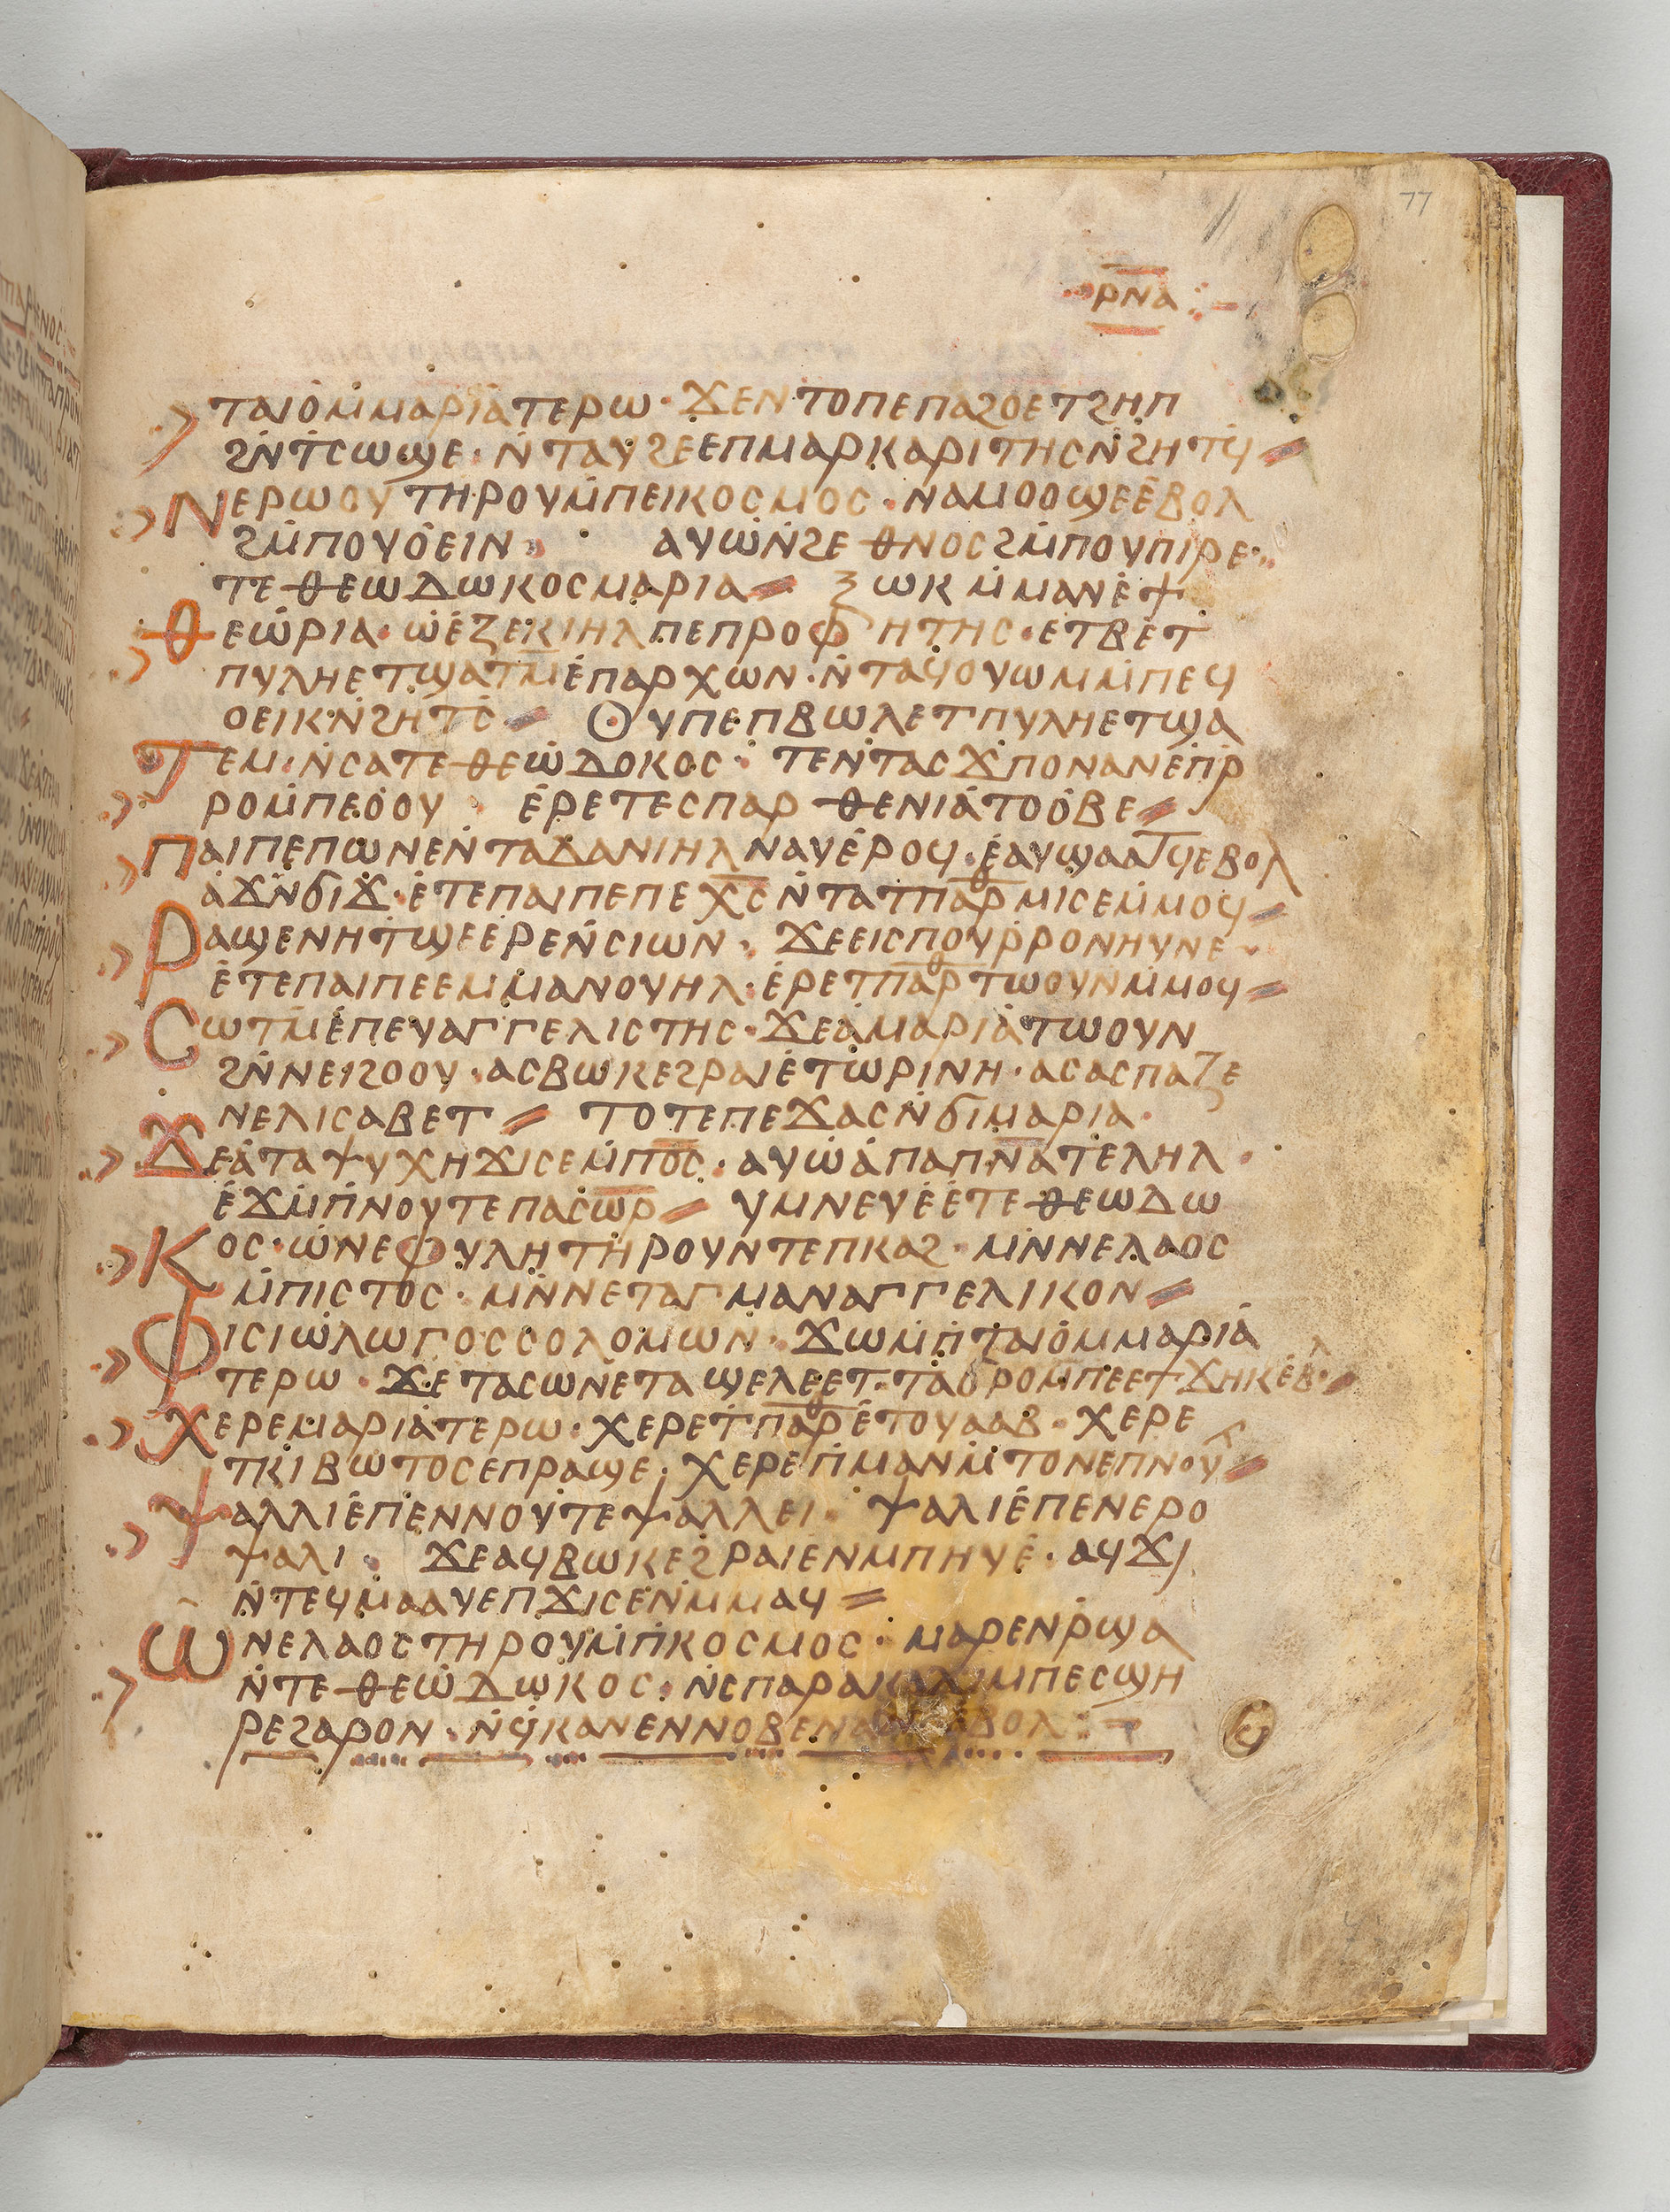 77
ⲣⲛⲁ
ⲧⲁⲓⲟⲙⲙⲁⲣⲓⲁⲧⲉⲣⲱ · ϫⲉⲛⲧⲟⲡⲉⲡⲁϩⲟⲉⲧϩⲏⲡ
ϩⲛⲧⲥⲱϣⲉ · ⲛⲧⲁⲩϩⲉⲉⲡⲙⲁⲣⲕⲁⲣⲓⲧⲏⲥⲛϩⲏⲧϥ
ⲛⲉⲣⲱⲟⲩⲧⲏⲣⲟⲩⲙⲡⲉⲓⲕⲟⲥⲙⲟⲥ · ⲛⲁⲙⲟⲟϣⲉⲉⲃⲟⲗ
ϩⲙⲡⲟⲩⲟⲉⲓⲛ · ⲁⲩⲱⲛϩⲉⲑⲛⲟⲥϩⲙⲡⲟⲩⲡⲓⲣⲉ ·
ⲧⲉⲑⲉⲱⲇⲱⲕⲟⲥⲙⲁⲣⲓⲁ ⲍⲱⲕⲙⲙⲁⲛⲉϯ
ⲑⲉⲱⲣⲓⲁ · ⲱⲉⲍⲉⲕⲓⲏⲗⲡⲉⲡⲣⲟⲫⲏⲧⲏⲥ · ⲉⲧⲃⲉⲧ
ⲡⲩⲗⲏⲉⲧϣⲁⲧⲙⲉⲡⲁⲣⲭⲱⲛ · ⲛⲧⲁϥⲟⲩⲱⲙⲙⲡⲉϥ
ⲟⲉⲓⲕⲛϩⲏⲧⲥ ⲟⲩⲡⲉⲡⲃⲱⲗⲉⲧⲡⲩⲗⲏⲉⲧϣⲁ
ⲧⲉⲙ · ⲛⲥⲁⲧⲉⲑⲉⲱⲇⲟⲕⲟⲥ · ⲧⲉⲛⲧⲁⲥϫⲡⲟⲛⲁⲛⲉⲡⲣ
ⲣⲟⲙⲡⲉⲟⲟⲩ · ⲉⲣⲉⲧⲉⲥⲡⲁⲣⲑⲉⲛⲓⲁⲧⲟⲟⲃⲉ
ⲡⲁⲓⲡⲉⲡⲱⲛⲉⲛⲧⲁⲇⲁⲛⲓⲏⲗⲛⲁⲩⲉⲣⲟϥ · ⲉⲁⲩϣⲁⲁⲧϥⲉⲃⲟⲗ
ⲁϫⲛϭⲓϫ · ⲉⲧⲉⲡⲁⲓⲡⲉⲡⲉⲭⲥ ⲛⲧⲁⲧⲡⲁⲣⲑⲙⲓⲥⲉⲙⲙⲟϥ
ⲣⲁϣⲉⲛⲏⲧϣⲉⲉⲣⲉⲛⲥⲓⲱⲛ · ϫⲉⲉⲓⲥⲡⲟⲩⲣⲣⲟⲛⲏⲩⲛⲉ
ⲉⲧⲉⲡⲁⲓⲡⲉⲉⲙⲙⲁⲛⲟⲩⲏⲗ · ⲉⲣⲉⲧⲡⲁⲣⲑⲧⲱⲟⲩⲛⲙⲙⲟϥ
ⲥⲱⲧⲙⲉⲡⲉⲩⲁⲅⲅⲉⲗⲓⲥⲧⲏⲥ · ϫⲉⲁⲙⲁⲣⲓⲁⲧⲱⲟⲩⲛ
ϩⲛⲛⲉⲓϩⲟⲟⲩ · ⲁⲥⲃⲱⲕⲉϩⲣⲁⲓⲉⲧⲱⲣⲓⲛⲏ · ⲁⲥⲁⲥⲡⲁⲍⲉ
ⲛⲉⲗⲓⲥⲁⲃⲉⲧ ⲧⲟⲧⲉⲡⲉϫⲁⲥⲛϭⲓⲙⲁⲣⲓⲁ ·
ϫⲉⲁⲧⲁⲯⲩⲭⲏϫⲓⲥⲉⲙⲡⲟⲥ · ⲁⲩⲱⲁⲡⲁⲡⲛⲁⲧⲉⲗⲏⲗ ·
ⲉϫⲙⲡⲛⲟⲩⲧⲉⲡⲁⲥⲱⲣ ⲩⲙⲛⲉⲩⲉⲉⲧⲉⲑⲉⲱⲇⲱ
ⲕⲟⲥ · ⲱⲛⲉⲫⲩⲗⲏⲧⲏⲣⲟⲩⲛⲧⲉⲡⲕⲁϩ · ⲙⲛⲛⲉⲗⲁⲟⲥ
ⲙⲡⲓⲥⲧⲟⲥ · ⲙⲛⲛⲉⲧⲁⲅⲙⲁⲛⲁⲅⲅⲉⲗⲓⲕⲟⲛ
ⲫⲓⲥⲓⲱⲗⲱⲅⲟⲥⲥⲟⲗⲟⲙⲱⲛ · ϫⲱⲙⲡⲧⲁⲓⲟⲙⲙⲁⲣⲓⲁ
ⲧⲉⲣⲱ · ϫⲉⲧⲁⲥⲱⲛⲉⲧⲁϣⲉⲗⲉⲉⲧ · ⲧⲁϭⲣⲟⲙⲡⲉⲉⲧϫⲏⲕⲉⲃⲗ
ⲭⲉⲣⲉⲙⲁⲣⲓⲁⲧⲉⲣⲱ · ⲭⲉⲣⲉⲧⲡⲁⲣⲑⲉⲧⲟⲩⲁⲁⲃ · ⲭⲉⲣⲉ
ⲧⲕⲓⲃⲱⲧⲟⲥⲉⲡⲣⲁϣⲉ · ⲭⲉⲣⲉⲡⲙⲁⲛⲙⲧⲟⲛⲉⲡⲛⲟⲩⲧ
ⲯⲁⲗⲗⲓⲉⲡⲉⲛⲛⲟⲩⲧⲉⲯⲁⲗⲗⲉⲓ · ⲯⲁⲗⲓⲉⲡⲉⲛⲉⲣⲟ
ⲯⲁⲗⲓ · ϫⲉⲁϥⲃⲱⲕⲉϩⲣⲁⲓⲉⲛⲙⲡⲏⲩⲉ · ⲁϥϫⲓ
ⲛⲧⲉϥⲙⲁⲁⲩⲉⲡϫⲓⲥⲉⲛⲙⲙⲁϥ
ⲱⲛⲉⲗⲁⲟⲥⲧⲏⲣⲟⲩⲙⲡⲕⲟⲥⲙⲟⲥ · ⲙⲁⲣⲉⲛⲣϣⲁ
ⲛⲧⲉⲑⲉⲱⲇⲱⲕⲟⲥ · ⲛⲥⲡⲁⲣⲁⲕⲁⲗⲓⲙⲡⲉⲥϣⲏ
ⲣⲉϩⲁⲣⲟⲛ · ⲛϥⲕⲁⲛⲉⲛⲛⲟⲃⲉⲛⲁⲛⲉⲃⲟⲗ